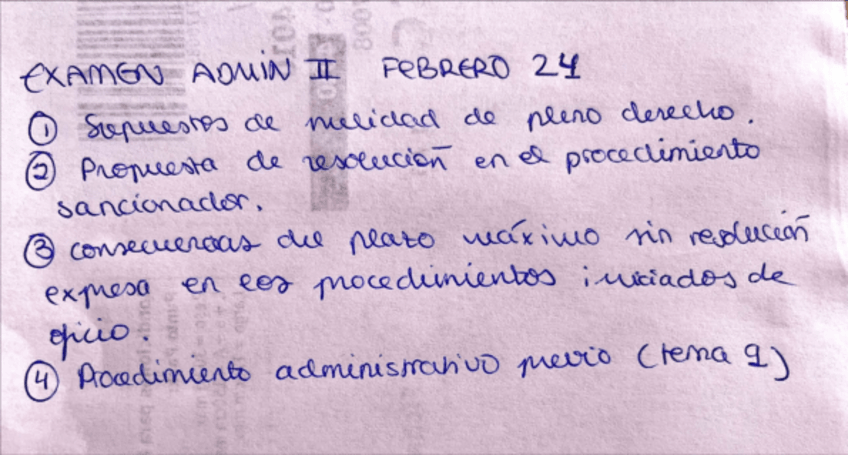 EXAMEN ADMIN II FEBRERO 24
① Supuestos de nulidad de pleno derecho.
② Propuesta de resolución en el procedimiento
sancionador.
③ consecuencias del plazo máximo sin resolución
expresa en los procedimientos iniciados de
oficio.
④ Procedimiento administrativo previo (tema 9)